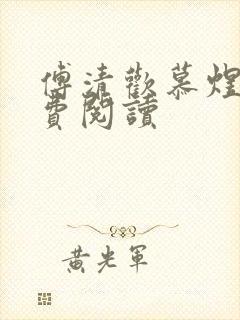 傅清歡慕煌
費閱讀
黄光軍